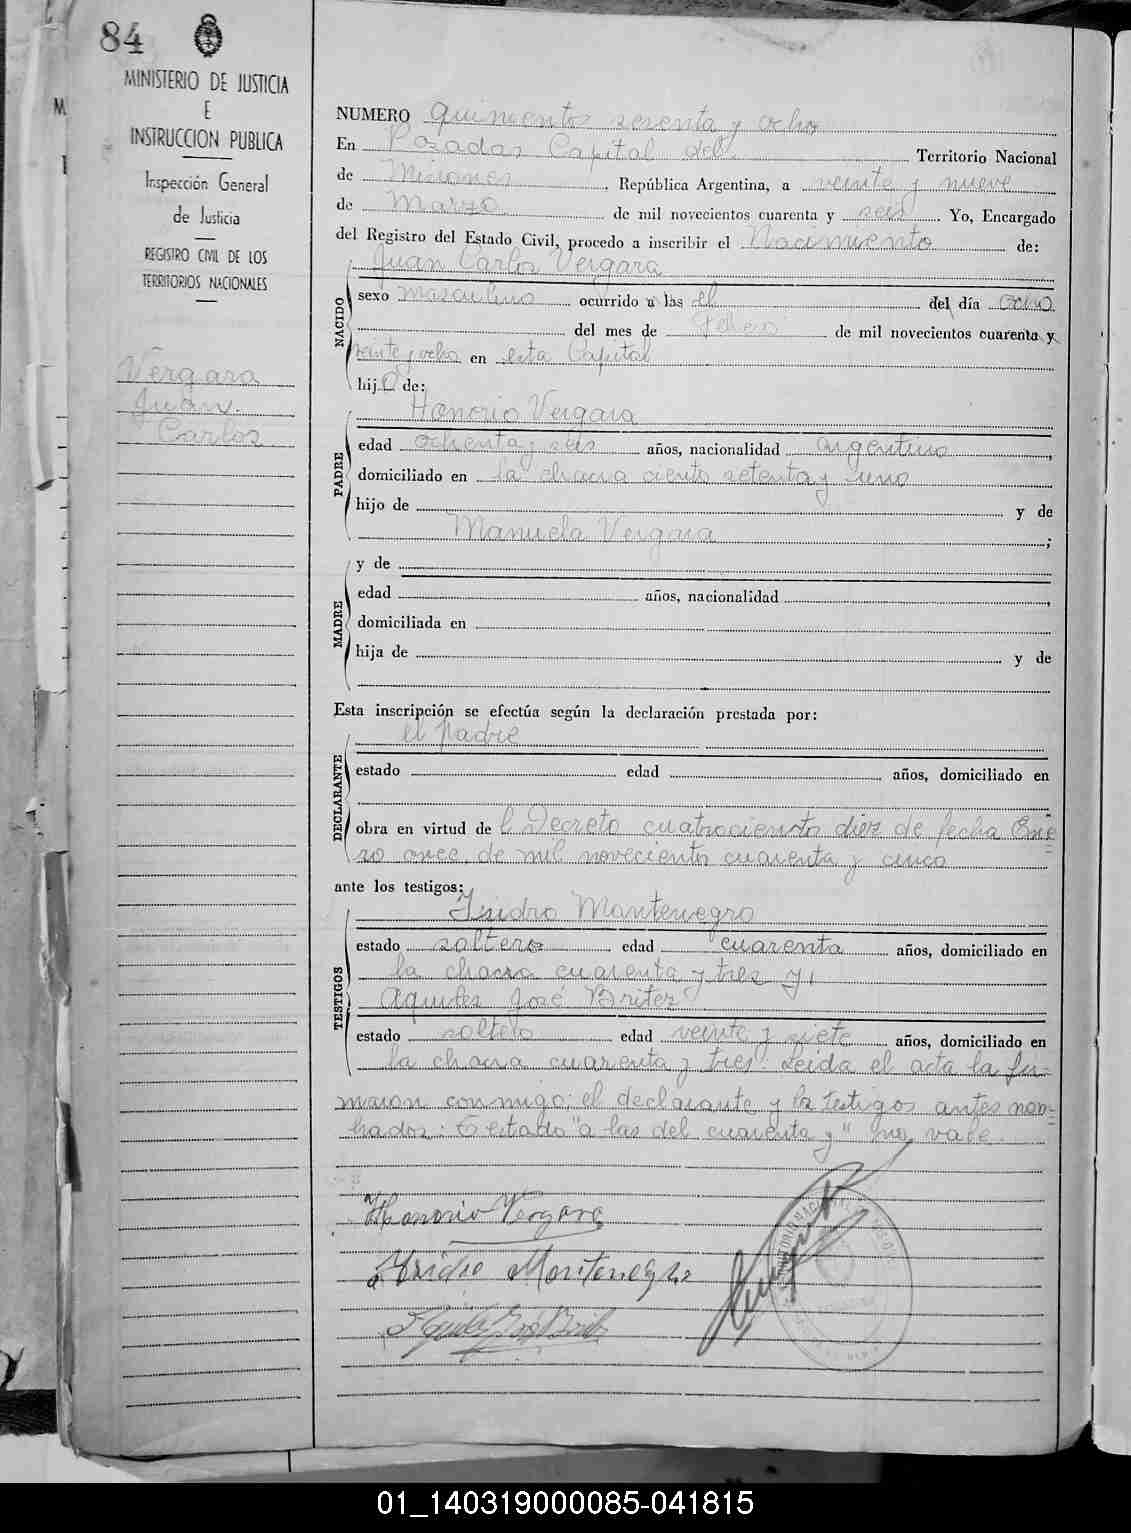 84
MINISTERIO DE JUSTICIA
E
INSTRUCCION PUBLICA
Inspección General
de Justicia
REGISTRO CIVIL DE LOS
TERRITORIOS NACIONALES
Vergara
Juan
Carlos
NUMERO quinientos sesenta y ocho
En Posadas Capital del Territorio Nacional
de Misiones República Argentina, a veinte y nueve
de Marzo de mil novecientos cuarenta y seis Yo, Encargado
del Registro del Estado Civil, procedo a inscribir el Nacimiento de:
Juan Carlos Vergara
NACIDO
sexo masculino ocurrido a las el del día ocho
del mes de de mil novecientos cuarenta y
veinte y ocho en esta Capital
hijo de:
Honorio Vergara
PADRE
edad ochenta y seis años, nacionalidad argentino,
domiciliado en la chacra ciento setenta y uno
hijo de y de
Manuela Vergara;
y de
MADRE
edad años, nacionalidad,
domiciliada en
hija de y de
Esta inscripción se efectúa según la declaración prestada por:
el padre
DECLARANTE
estado edad años, domiciliado en
obra en virtud del Decreto cuatrocientos diez de fecha Ene=
ro once, de mil novecientos cuarenta y cinco
ante los testigos:
Isidro Montenegro
TESTIGOS
estado soltero edad cuarenta años, domiciliado en
la chacra cuarenta y tres y,
Aquiles José Britez
estado soltero edad veinte y siete años, domiciliado en
la chacra cuarenta y tres. Leida el acta la fir=
maron conmigo; el declarante y los testigos antes nom=
brados: Testado "a las del cuarenta y" no vale.
Honorio Vergara
Isidro Montenegro
01_140319000085-041815